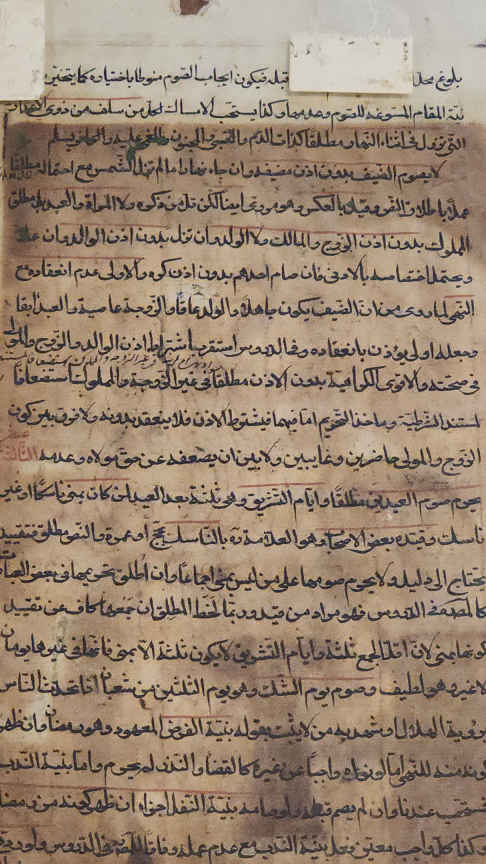 بلوغ محل قبله فيكون ايجاب الصوم منوطا باختياره كما يتخير
نية المقام المسوغة للصوم وعدمها وكذا يستحب الامساك لكل من سلف من ذوي الاعذار
التي تزول في اثناء النهار مطلقا كذات الدم والصبي والمجنون والمغمى عليه والكافر يسلم
لا يصوم الضيف بدون اذن مضيفه وان جاء نهارا ما لم تزل الشمس مع احتماله مطلقا
عملا باطلاق النص وقيل بالعكس وهو مروي ايضا لكن قل من ذكره ولا المراة والعبد بل مطلق
المملوك بدون اذن الزوج والمالك ولا الولد وان نزل بدون اذن الوالد وان علا
ويحتمل اختصاصه بالادنى فان صام احدهم بدون اذن كره والاولى عدم انعقاده مع
النهي لما روي من ان الضيف يكون جاهلا والولد عاقا والزوجة عاصية والعبد ابقا
وجعله اولى يؤذن بانعقاده وفي الدروس استقرب اشتراط اذن الوالد والزوج والمولى
في صحته والاقوى الكراهية بدون الاذن مطلقا في غير الزوجة والمملوك استضعافا
لمستند الشرطية وماخذ التحريم اما فيهما فيشترط الاذن فلا ينعقد بدونه ولا فرق بين كون
الزوج والمولى حاضرين وغايبين ولا بين ان يضعفه عن حق مولاه وعدمه
يحرم صوم العيدين مطلقا وايام التشريق وهي ثلثة بعد العيد لمن كان بمنى ناسكا او غير
ناسك وقيده بعض الاصحاب وهو العلامة ره بالناسك بحج او عمرة والنص مطلق فتقييده
يحتاج الى دليل ولا يحرم صومها على من ليس بمنى اجماعا وان اطلق تحريمها في بعض العبارات
كالمصنف في الدروس فهو مراد من قيد وربما لحظ المطلق ان جمعها كاف عن تقييد
كونها بمنى لان اقل الجمع ثلثة وايام التشريق لا يكون ثلثة الا بمنى فانها في غيرها يومان
لا غير وهو لطيف وصوم يوم الشك وهو يوم الثلثين من شعبان اذا تحدث الناس
برؤية الهلال او شهد به من لا يثبت بقوله بنية الفرض المعهود وهو رمضان وان ظهر
كونه منه للنهي اما لو نواه واجبا عن غيره كالقضا والنذر لم يحرم واما بنية الندب
فمستحب عندنا وان لم يصم قبله ولو صامه بنية النفل اجزاه ان ظهر كونه من رمضان
وكذا كل واجب معين فعل بنية الندب مع عدم علمه وفاقا للشيخ في الدروس ولو ردد